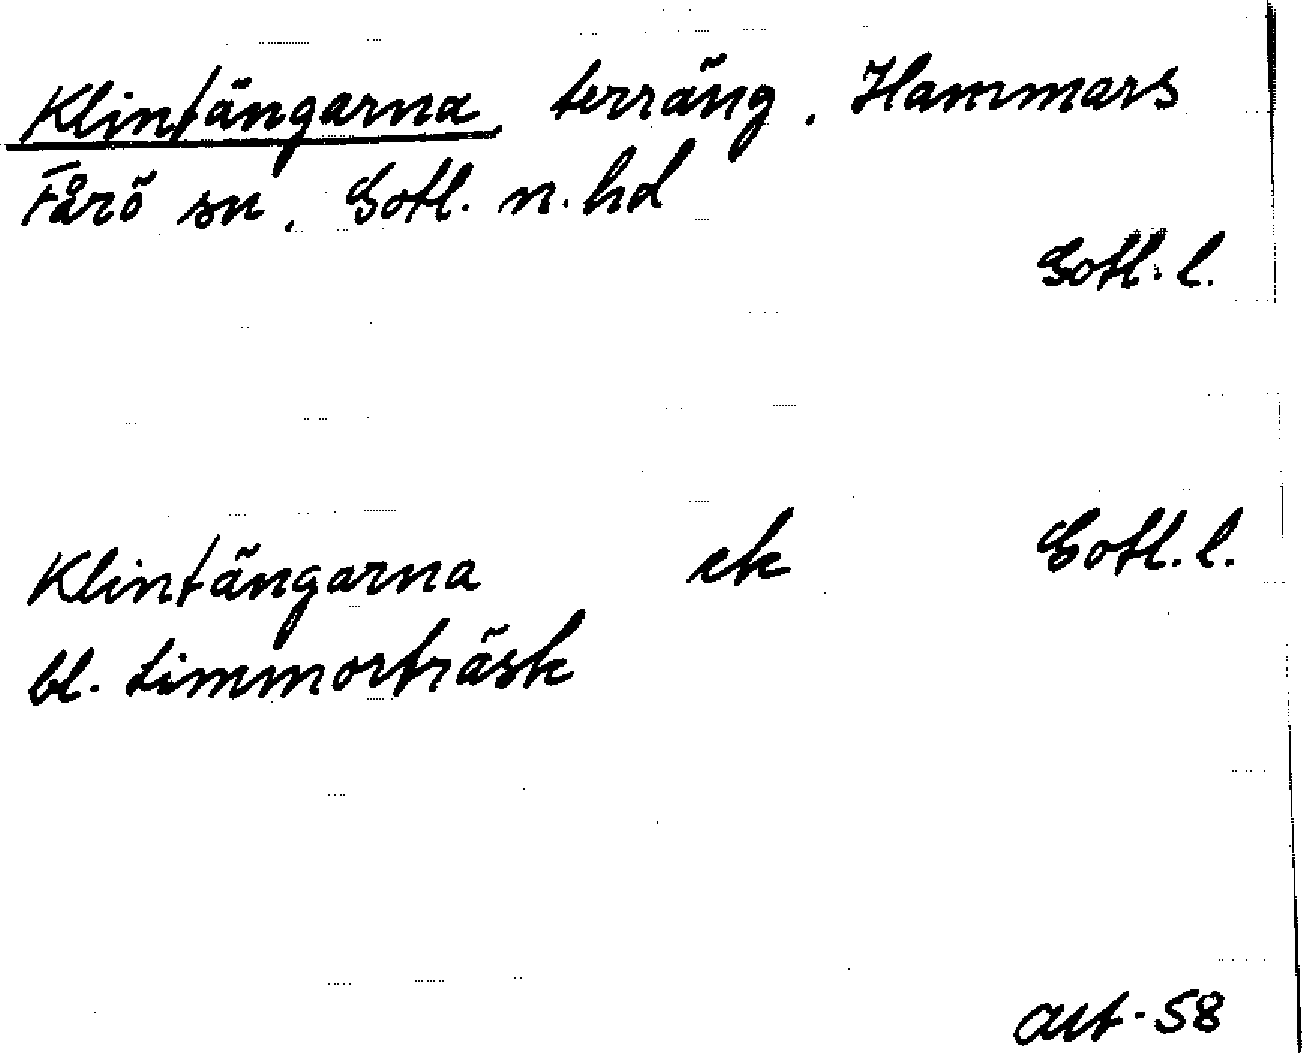 Klintängarna, terräng, Hammars
Fårö sn, Gotl. n. hd
Gotl. l.
Klintängarna ek Gotl. l.
bl. Limmorträsk
Aut -58